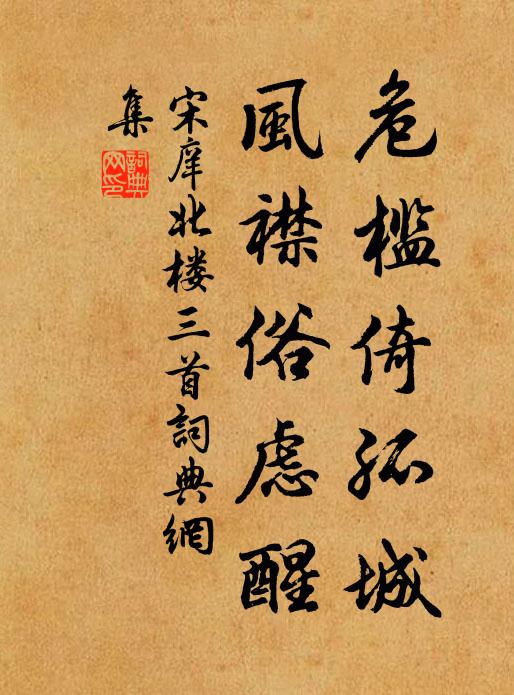 危槛倚孤城
風襟俗虑醒
宋庠北楼三首詞典網
集
詞典網印